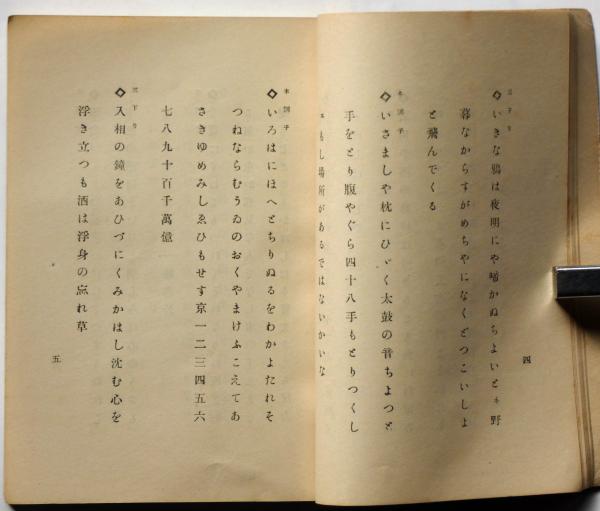 三下り
◇いきな鴉は夜明にや啼かぬちよいとネ野
暮なからすがめちやになくどつこいしよ
と飛んでくる
本調子
◇いさましや枕にひゞく太鼓の音ちよつと
手をとり腹やぐら四十八手もとりつくし
もし場所があるではないかいな
四
本調子
◇いろはにほへとちりぬるをわかよたれそ
つねならむうゐのおくやまけふこえてあ
さきゆめみしゑひもせす京一二三四五六
七八九十百千萬億
三下り
◇入相の鐘をあひづにくみかはし沈む心を
浮き立つも酒は浮身の忘れ草
五